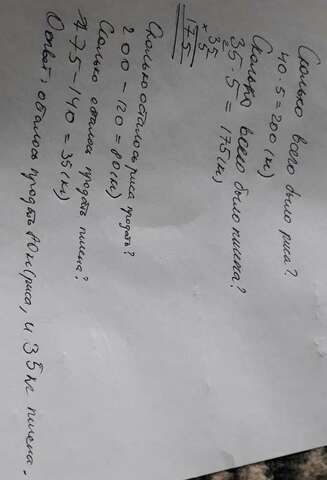 Сколько всего было риса?
40·5=200 (кг)
Сколько всего было пшена?
35·5 = 175 (кг)
35
× 5
175
Сколько осталось риса продать?
200 - 120 = 80 (кг)
Сколько осталось продать пшена?
175 - 140 = 35 (кг)
Ответ: осталось продать 80кг риса, и 35 кг пшена,